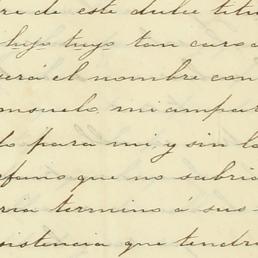 re de este dulce titu
hijo tuyo tan caro a
será el nombre con
onsuelo, mi ampar
lo para mi, y sin la
efano que no sabria
ria termino á sus
sistencia que tendr